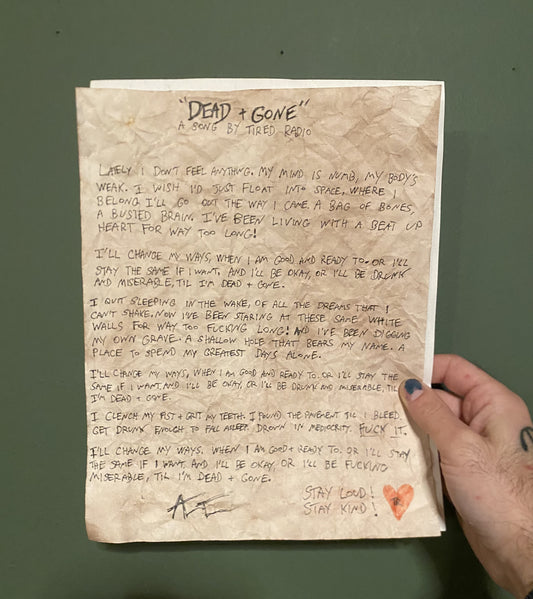 "DEAD + GONE"
A SONG BY TIRED RADIO
LATELY I DON'T FEEL ANYTHING. MY MIND IS NUMB, MY BODY'S
WEAK. I WISH I'D JUST FLOAT INTO SPACE, WHERE I
BELONG. I'LL GO OUT THE WAY I CAME. A BAG OF BONES,
A BUSTED BRAIN. I'VE BEEN LIVING WITH A BEAT UP
HEART FOR WAY TOO LONG!
I'LL CHANGE MY WAYS, WHEN I AM GOOD AND READY TO. OR I'LL
STAY THE SAME IF I WANT. AND I'LL BE OKAY, OR I'LL BE DRUNK
AND MISERABLE, TIL I'M DEAD + GONE.
I QUIT SLEEPING IN THE WAKE, OF ALL THE DREAMS THAT I
CAN'T SHAKE. NOW I'VE BEEN STARING AT THESE SAME WHITE
WALLS FOR WAY TOO FUCKING LONG! AND I'VE BEEN DIGGING
MY OWN GRAVE. A SHALLOW HOLE THAT BEARS MY NAME. A
PLACE TO SPEND MY GREATEST DAYS ALONE.
I'LL CHANGE MY WAYS, WHEN I AM GOOD AND READY TO. OR I'LL STAY THE
SAME IF I WANT. AND I'LL BE OKAY, OR I'LL BE DRUNK AND MISERABLE, TIL
I'M DEAD + GONE.
I CLENCH MY FIST + GRIT MY TEETH. I POUND THE PAVEMENT TIL I BLEED.
GET DRUNK ENOUGH TO FALL ASLEEP. DROWN IN MEDIOCRITY. FUCK IT.
I'LL CHANGE MY WAYS. WHEN I AM GOOD + READY TO. OR I'LL STAY
THE SAME IF I WANT. AND I'LL BE OKAY, OR I'LL BE FUCKING
MISERABLE, TIL I'M DEAD + GONE.
STAY LOUD!
STAY KIND!